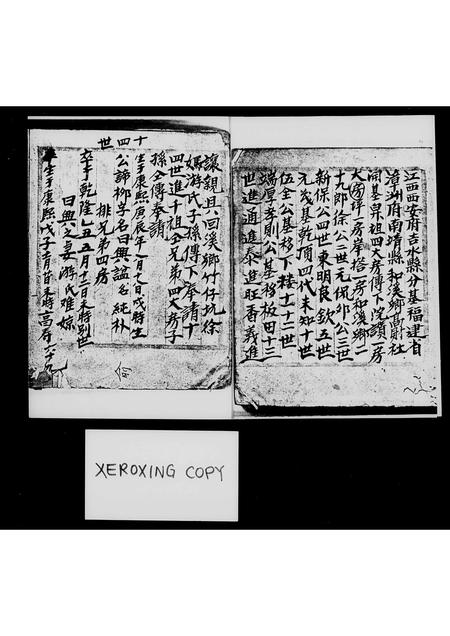 江西西安府吉水縣分基福建省
漳洲府南靖縣和溪鄉高才社
開基昇祖四大房傳下院讀一房
大國坪一房岸搭一房和溪鄉二
十九郎徐公二世元侃非公三世
新保公四世東明良欽五世
元茂基乾頂四代未知十世
伍全公基移下樓十一十二世
端厚孝則公基移板田十三
世進通進泰進旺香義進
讓親具回溪鄉竹仔坑徐
媽游氏子孫傳下奉請十
四世進千祖公兄弟四大房子
孫仝傳奉請
十四世
生于康熙庚辰年八月七日戌時生
公諱柳字名曰興謚名純朴
排兄弟四房
卒于乾隆乙丑五月十二日未時別世
曰興公之妻游氏雖娘
生于康熙戊子二月首未時高寿六十九
XEROXING COPY